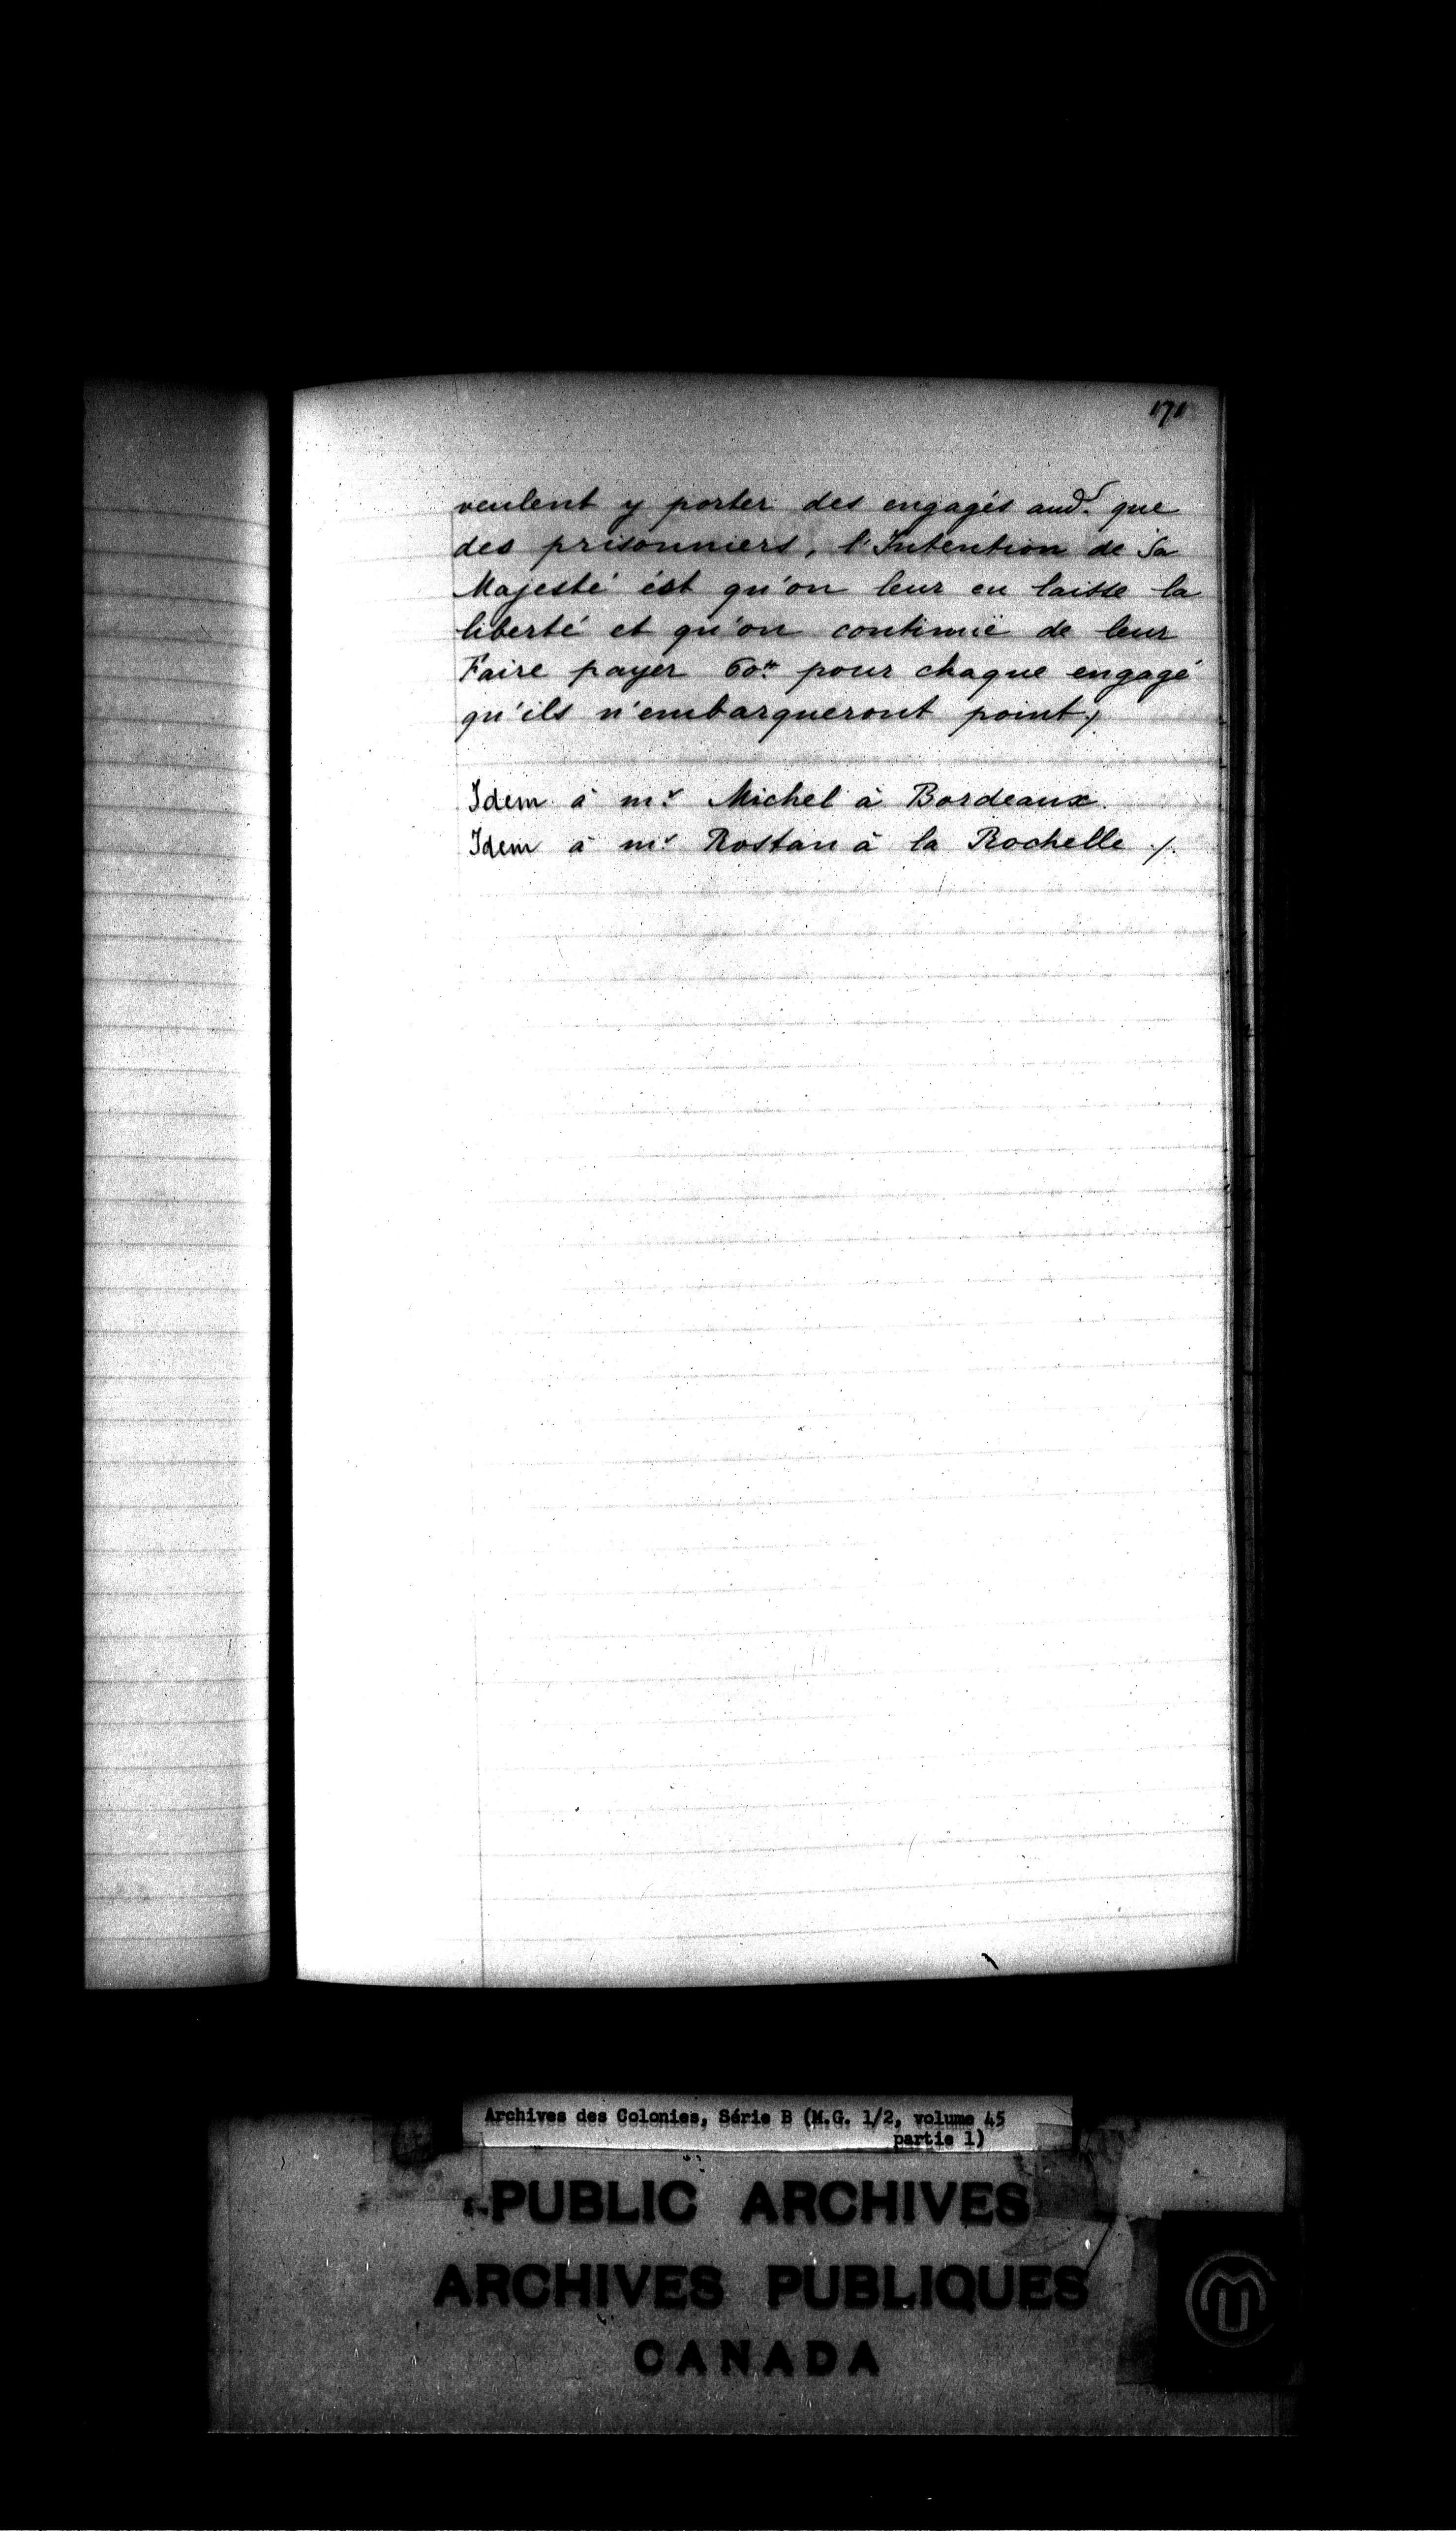 171
veulent y porter des engagés aud. que
des prisonniers, l'Intention de Sa
Majesté ést qu'on leur en laisse la
liberté et qu'on continuë de leur
Faire payer 60# pour chaque engagé
qu'ils n'embarqueront point /.
Idem à mr. Michel à Bordeaux.
Idem à mr. Rostan à la Rochelle /.
Archives des Colonies, Série B (M.G. 1/2, volume 45
partie 1)
PUBLIC ARCHIVES
ARCHIVES PUBLIQUES
CANADA